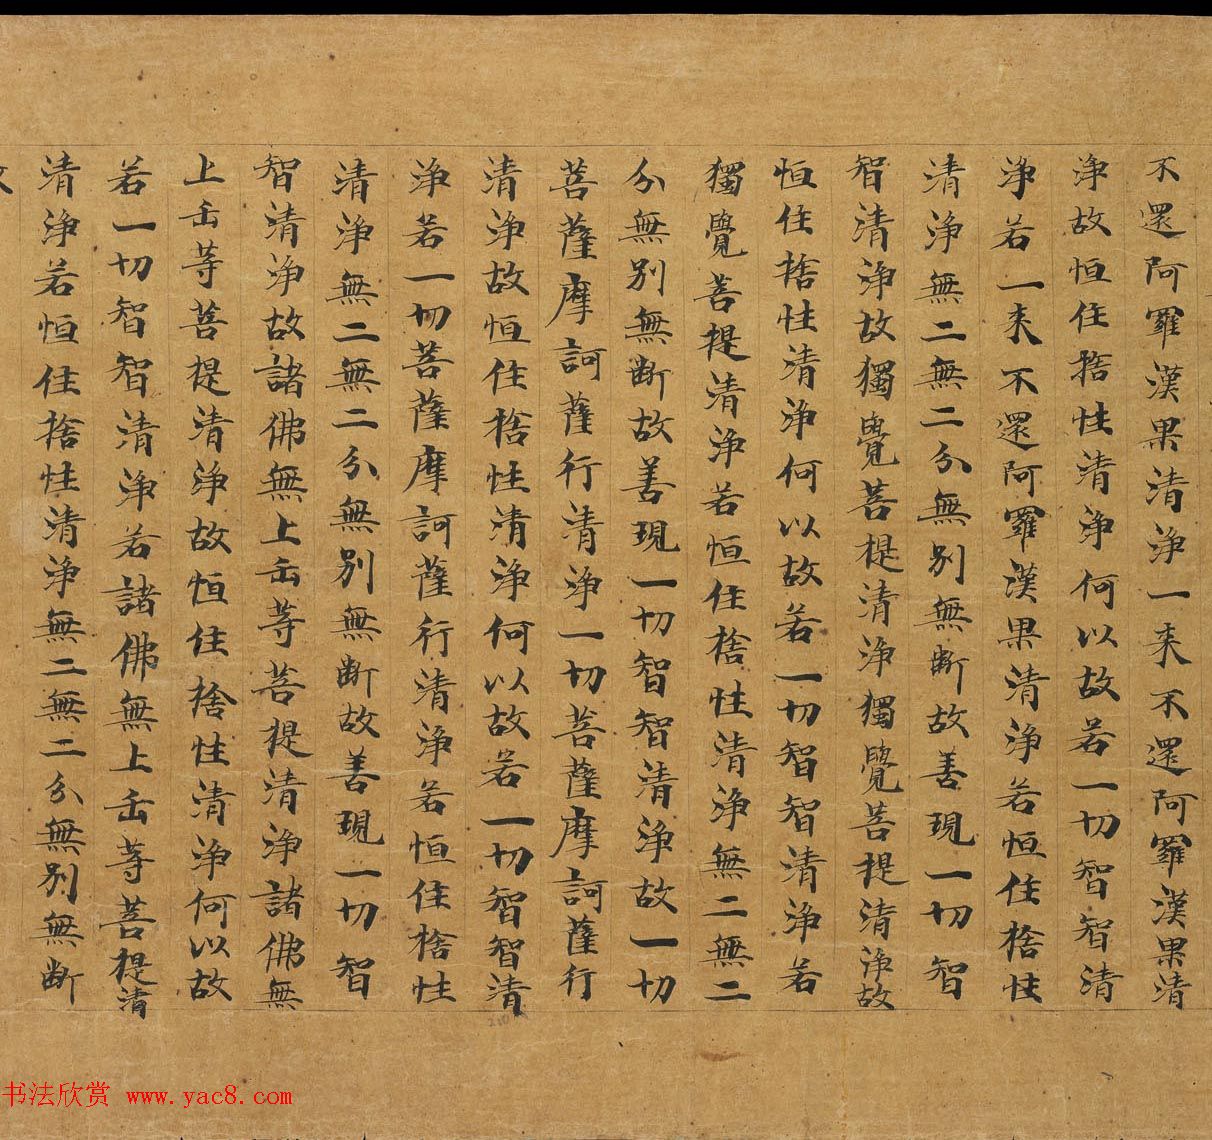 不還阿羅漢果清淨一来不還阿羅漢果清
淨故恒住捨性清淨何以故若一切智智清
淨若一来不還阿羅漢果清淨若恒住捨性
清淨無二無二分無別無断故善現一切智
智清淨故獨覺菩提清淨獨覺菩提清淨故
恒住捨性清淨何以故若一切智智清淨若
獨覺菩提清淨若恒住捨性清淨無二無二
分無別無断故善現一切智智清淨故一切
菩薩摩訶薩行清淨一切菩薩摩訶薩行
清淨故恒住捨性清淨何以故若一切智智清
淨若一切菩薩摩訶薩行清淨若恒住捨性
清淨無二無二分無別無断故善現一切智
智清淨故諸佛無上正等菩提清淨諸佛無
上正等菩提清淨故恒住捨性清淨何以故
若一切智智清淨若諸佛無上正等菩提清
清淨若恒住捨性清淨無二無二分無別無断
书法欣赏 www.yac8.com